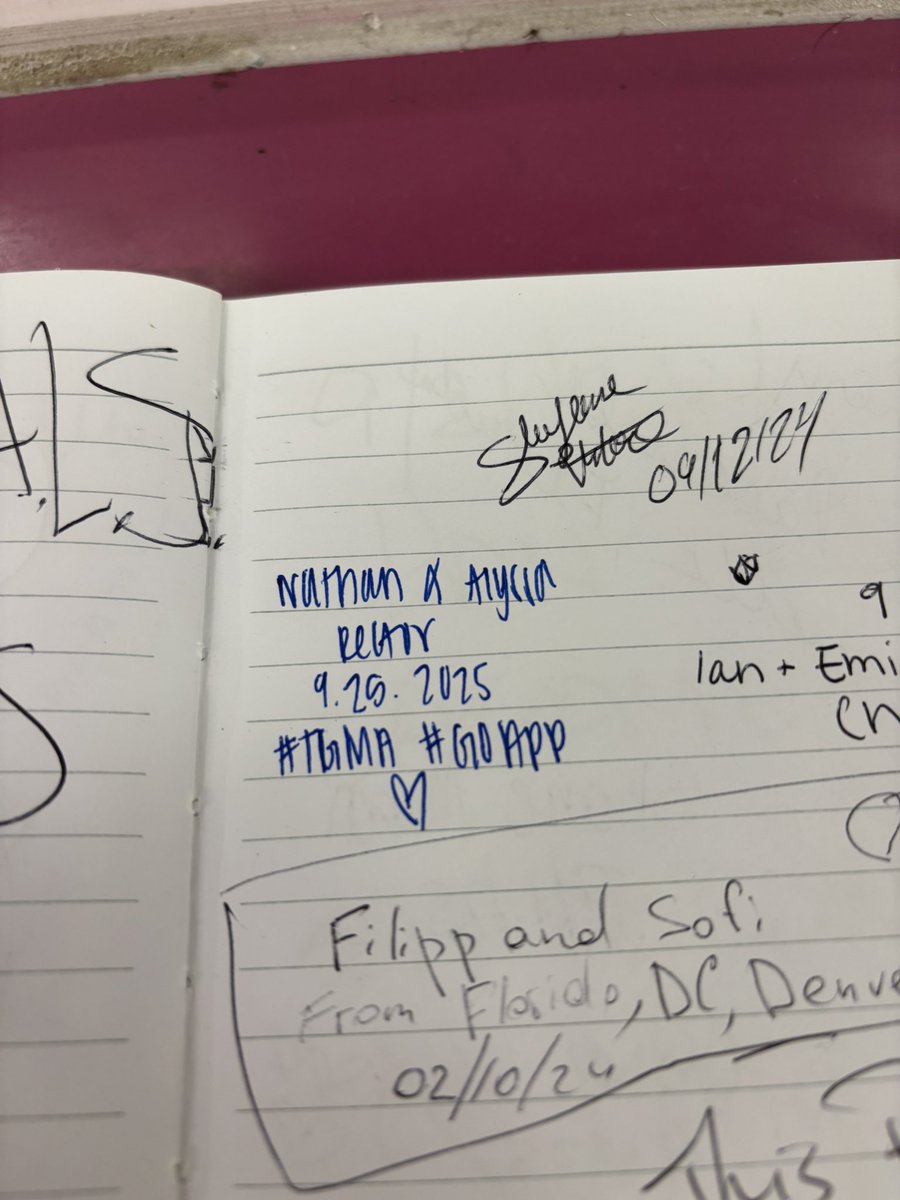 A.L.S.
09/12/24
Nathan & Alyssa
Rector
9.25.2025
#TGMA #GOAPP
9
Ian + Emi
Ch
Filipp and Sofi
From Florida, DC, Denve
02/10/24
This